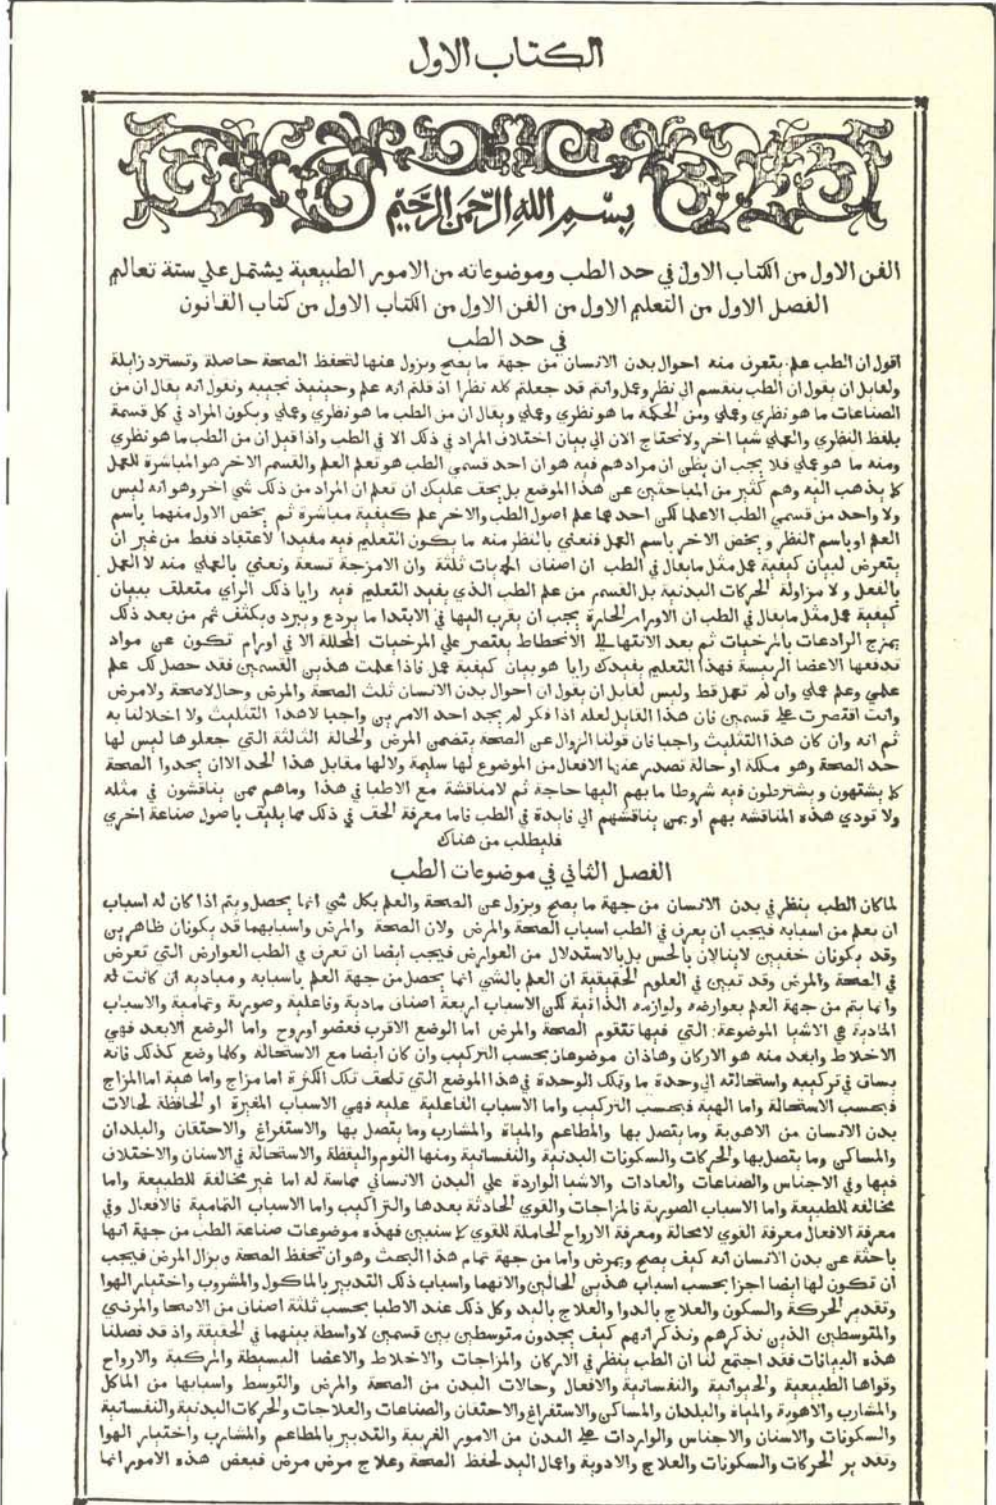 الكتاب الاول
بسم الله الرحمن الرحيم
الفن الاول من الكتاب الاول في حد الطب وموضوعاته من الامور الطبيعية يشتمل علي ستة تعاليم
الفصل الاول من التعليم الاول من الفن الاول من الكتاب الاول من كتاب القانون
في حد الطب
اقول ان الطب علم يتعرف منه احوال بدن الانسان من جهة ما يصح ويزول عنها لتحفظ الصحة حاصلة وتسترد زايلة
ولقايل ان يقول ان الطب ينقسم الي نظر وعمل وانتم قد جعلتم كله نظرا اذ قلتم انه علم وحينيذ نجيبه ونقول انه يقال ان من
الصناعات ما هو نظري وعملي ومن الحكمة ما هو نظري وعملي ويقال ان من الطب ما هو نظري وعملي ويكون المراد في كل قسمة
بلفظ النظري والعملي شيا اخر ولا نحتاج الان الي بيان اختلاف المراد في ذلك الا في الطب واذا قيل ان من الطب ما هو نظري
ومنه ما هو عملي فلا يجب ان يظن ان مرادهم فيه هو ان احد قسمي الطب هو تعلم العلم والقسم الاخر هو المباشرة للعمل
كما يذهب اليه وهم كثير من الباحثين عن هذا الموضع بل يحق عليك ان تعلم ان المراد من ذلك شي اخر وهو انه ليس
ولا واحد من قسمي الطب الا علما لكن احدهما علم اصول الطب والاخر علم كيفية مباشرة ثم يخص الاول منهما باسم
العلم او باسم النظر ويخص الاخر باسم العمل فنعني بالنظر منه ما يكون التعليم فيه مفيدا لاعتقاد فقط من غير ان
يتعرض لبيان كيفية عمل مثل ما يقال في الطب ان اصناف الحميات ثلثة وان الامزجة تسعة ونعني بالعملي منه لا العمل
بالفعل ولا مزاولة الحركات البدنية بل القسم من علم الطب الذي يفيد التعليم فيه رايا ذلك الراي متعلق ببيان
كيفية عمل مثل ما يقال في الطب ان الاورام الحارة يجب ان يقرب اليها في الابتدا ما يردع ويبرد ويكثف ثم من بعد ذلك
يمزج الرادعات بالمرخيات ثم بعد الانتها الي الانحطاط يقتصر علي المرخيات المحللة الا في اورام تكون عن مواد
تدفعها الاعضا الرييسة فهذا التعليم يفيدك رايا هو بيان كيفية عمل فاذا علمت هذين القسمين فقد حصل لك علم
علمي وعلم عملي وان لم تعمل قط وليس لقايل ان يقول ان احوال بدن الانسان ثلث الصحة والمرض وحال لا صحة ولا مرض
وانت اقتصرت علي قسمين فان هذا القايل لعله اذا فكر لم يجد احد الامرين واجبا لا هذا التثليث ولا اخلالنا به
ثم انه وان كان هذا التثليث واجبا فان قولنا الزوال عن الصحة يتضمن المرض والحالة الثالثة التي جعلوها ليس لها
حد الصحة وهو ملكة او حالة تصدر عنها الافعال من الموضوع لها سليمة ولا لها مقابل هذا الحد الا ان يحدوا الصحة
كما يشتهون ويشترطون فيه شروطا ما بهم اليها حاجة ثم لا مناقشة مع الاطبا في هذا وما هم ممن يناقشون في مثله
ولا تودي هذه المناقشه بهم او بمن يناقشهم الي فايدة في الطب فاما معرفة الحق في ذلك مما يليق باصول صناعة اخري
فليطلب من هناك
الفصل الثاني في موضوعات الطب
لما كان الطب ينظر في بدن الانسان من جهة ما يصح ويزول عن الصحة والعلم بكل شي انما يحصل ويتم اذا كان له اسباب
ان يعلم من اسبابه فيجب ان يعرف في الطب اسباب الصحة والمرض ولان الصحة والمرض واسبابهما قد يكونان ظاهرين
وقد يكونان خفيين لا ينالان بالحس بل بالاستدلال من العوارض فيجب ايضا ان تعرف في الطب العوارض التي تعرض
في الصحة والمرض وقد تبين في العلوم الحقيقية ان العلم بالشي انما يحصل من جهة العلم باسبابه ومباديه ان كانت له
وانما يتم من جهة العلم بعوارضه ولوازمه الذاتية لكن الاسباب اربعة اصناف مادية وفاعلية وصورية وتمامية والاسباب
المادية هي الاشيا الموضوعة التي فيها تتقوم الصحة والمرض اما الوضع الاقرب فعضو او روح واما الوضع الابعد فهي
الاخلاط وابعد منه هو الاركان وهاذان موضوعان بحسب التركيب وان كان ايضا مع الاستحالة وكلما وضع كذلك فانه
يساق في تركيبه واستحالته الي وحدة ما وتلك الوحدة في هذا الموضع التي تلحق تلك الكثرة اما مزاج واما هية اما المزاج
فبحسب الاستحالة واما الهية فبحسب التركيب واما الاسباب الفاعلية عليه فهي الاسباب المغيرة او الحافظة لحالات
بدن الانسان من الاهوية وما يتصل بها والمطاعم والمياة والمشارب وما يتصل بها والاستفراغ والاحتقان والبلدان
والمساكن وما يتصل بها والحركات والسكونات البدنية والنفسانية ومنها النوم واليقظة والاستحالة في الاسنان والاختلاف
فيها وفي الاجناس والصناعات والعادات والاشيا الواردة علي البدن الانساني مماسة له اما غير مخالفة للطبيعة واما
مخالفه للطبيعة واما الاسباب الصورية فالمزاجات والقوي الحادثة بعدها والتراكيب واما الاسباب التمامية فالافعال وفي
معرفة الافعال معرفة القوي لا محالة ومعرفة الارواح الحاملة للقوي كما سنبين فهذه موضوعات صناعة الطب من جهة انها
باحثة عن بدن الانسان انه كيف يصح ويمرض واما من جهة تمام هذا البحث وهو ان تحفظ الصحة ويزال المرض فيجب
ان تكون لها ايضا اجزا بحسب اسباب هذين الحالين والاتهما واسباب ذلك التدبير بالماكول والمشروب واختيار الهوا
وتقدير الحركة والسكون والعلاج بالدوا والعلاج باليد وكل ذلك عند الاطبا بحسب ثلثة اصناف من الاصحا والمرضي
والمتوسطين الذين نذكرهم ونذكر انهم كيف يجدون متوسطين بين قسمين لا واسطة بينهما في الحقيقة واذ قد فصلنا
هذه البيانات فقد اجتمع لنا ان الطب ينظر في الاركان والمزاجات والاخلاط والاعضا البسيطة والمركبة والارواح
وقواها الطبيعية والحيوانية والنفسانية والافعال وحالات البدن من الصحة والمرض والتوسط واسبابها من الماكل
والمشارب والاهوية والمياة والبلدان والمساكن والاستفراغ والاحتقان والصناعات والعلاجات والحركات البدنية والنفسانية
والسكونات والاسنان والاجناس والواردات علي البدن من الامور الغريبة والتدبير بالمطاعم والمشارب واختيار الهوا
وتقدير الحركات والسكونات والعلاج والادوية واعمال اليد لحفظ الصحة وعلاج مرض مرض فبعض هذه الامور انما